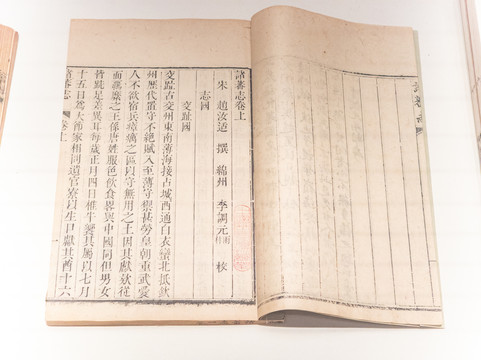 諸蕃志卷上
宋 趙汝适 撰 綿州 李調元 雨村 校
志國
交趾國
交趾古交州東南薄海接占城西通白衣蠻北抵欽
州歷代置守不絕賦入至薄守禦甚勞皇朝重武愛
人不欲宿兵瘴癘之區以守無用之土因其獻欵從
而羈縻之王係唐姓服色飲食畧與中國同但男女
皆跣足差異耳每歲正月四日椎牛饗其屬以七月
十五日爲大節家相問遺官寮以生口獻其酋十六
諸蕃志 卷上